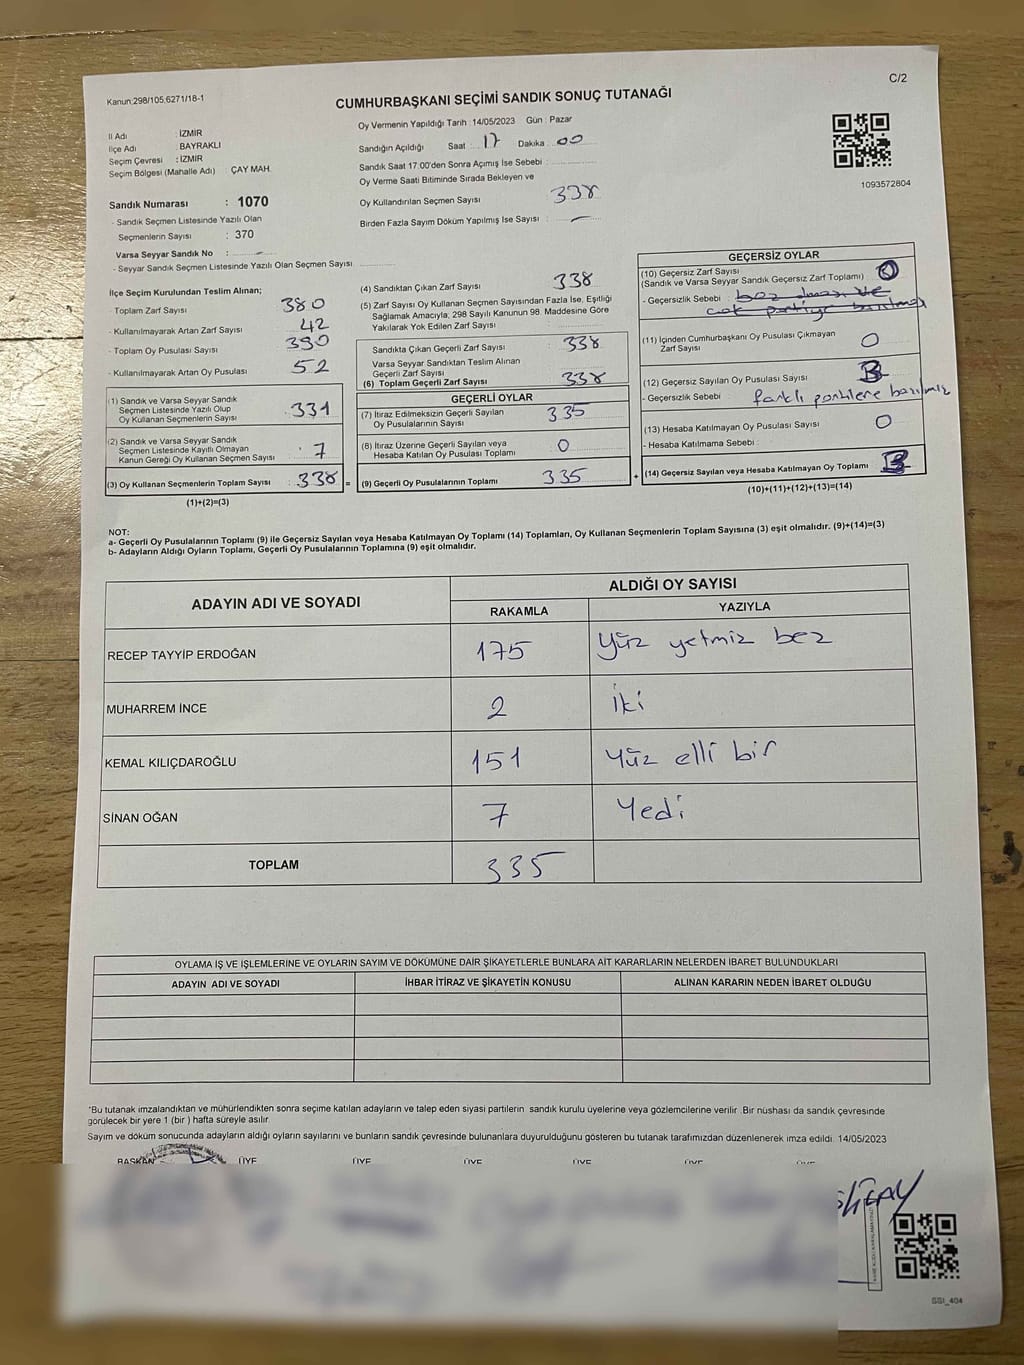 C/2
Kanun:298/105;6271/18-1
CUMHURBAŞKANI SEÇİMİ SANDIK SONUÇ TUTANAĞI
İl Adı : İZMİR
İlçe Adı : BAYRAKLI
Seçim Çevresi : İZMİR
Seçim Bölgesi (Mahalle Adı) : ÇAY MAH.
Sandık Numarası : 1070
- Sandık Seçmen Listesinde Yazılı Olan
Seçmenlerin Sayısı : 370
Varsa Seyyar Sandık No : -
- Seyyar Sandık Seçmen Listesinde Yazılı Olan Seçmen Sayısı
Oy Vermenin Yapıldığı Tarih : 14/05/2023 Gün : Pazar
Sandığın Açıldığı Saat : 17 Dakika : 00
Sandık Saat 17:00'den Sonra Açımış İse Sebebi :
Oy Verme Saati Bitiminde Sırada Bekleyen ve
Oy Kullandırılan Seçmen Sayısı 338
Birden Fazla Sayım Döküm Yapılmış İse Sayısı : -
1093572804
İlçe Seçim Kurulundan Teslim Alınan;
Toplam Zarf Sayısı 380
- Kullanılmayarak Artan Zarf Sayısı 42
- Toplam Oy Pusulası Sayısı 390
- Kullanılmayarak Artan Oy Pusulası 52
(1) Sandık ve Varsa Seyyar Sandık
Seçmen Listesinde Yazılı Olup
Oy Kullanan Seçmenlerin Sayısı : 331
(2) Sandık ve Varsa Seyyar Sandık
Seçmen Listesinde Kayıtlı Olmayan
Kanun Gereği Oy Kullanan Seçmen Sayısı : 7
(3) Oy Kullanan Seçmenlerin Toplam Sayısı : 338 =
(1)+(2)=(3)
(4) Sandıktan Çıkan Zarf Sayısı : 338
(5) Zarf Sayısı Oy Kullanan Seçmen Sayısından Fazla İse, Eşitliği
Sağlamak Amacıyla, 298 Sayılı Kanunun 98. Maddesine Göre
Yakılarak Yok Edilen Zarf Sayısı :
Sandıkta Çıkan Geçerli Zarf Sayısı : 338
Varsa Seyyar Sandıktan Teslim Alınan
Geçerli Zarf Sayısı
(6) Toplam Geçerli Zarf Sayısı : 338
GEÇERLİ OYLAR
(7) İtiraz Edilmeksizin Geçerli Sayılan
Oy Pusulalarının Sayısı : 335
(8) İtiraz Üzerine Geçerli Sayılan veya
Hesaba Katılan Oy Pusulası Toplamı : 0
(9) Geçerli Oy Pusulalarının Toplamı : 335 +
GEÇERSİZ OYLAR
(10) Geçersiz Zarf Sayısı
(Sandık ve Varsa Seyyar Sandık Geçersiz Zarf Toplamı) : 0
- Geçersizlik Sebebi : boş olması ve
çok partiye basılması
(11) İçinden Cumhurbaşkanı Oy Pusulası Çıkmayan
Zarf Sayısı : 0
(12) Geçersiz Sayılan Oy Pusulası Sayısı : 3
- Geçersizlik Sebebi farklı partilere basılmış
(13) Hesaba Katılmayan Oy Pusulası Sayısı : 0
- Hesaba Katılmama Sebebi :
(14) Geçersiz Sayılan veya Hesaba Katılmayan Oy Toplamı : 3
(10)+(11)+(12)+(13)=(14)
NOT:
a- Geçerli Oy Pusulalarının Toplamı (9) ile Geçersiz Sayılan veya Hesaba Katılmayan Oy Toplamı (14) Toplamları, Oy Kullanan Seçmenlerin Toplam Sayısına (3) eşit olmalıdır. (9)+(14)=(3)
b- Adayların Aldığı Oyların Toplamı, Geçerli Oy Pusulalarının Toplamına (9) eşit olmalıdır.
ADAYIN ADI VE SOYADI
ALDIĞI OY SAYISI
RAKAMLA YAZIYLA
RECEP TAYYİP ERDOĞAN 175 Yüz yetmiz bez
MUHARREM İNCE 2 İki
KEMAL KILIÇDAROĞLU 151 Yüz elli bir
SİNAN OĞAN 7 Yedi
TOPLAM 335
OYLAMA İŞ VE İŞLEMLERİNE VE OYLARIN SAYIM VE DÖKÜMÜNE DAİR ŞİKAYETLERLE BUNLARA AİT KARARLARIN NELERDEN İBARET BULUNDUKLARI
ADAYIN ADI VE SOYADI İHBAR İTİRAZ VE ŞİKAYETİN KONUSU ALINAN KARARIN NEDEN İBARET OLDUĞU
*Bu tutanak imzalandıktan ve mühürlendikten sonra seçime katılan adayların ve talep eden siyasi partilerin sandık kurulu üyelerine veya gözlemcilerine verilir .Bir nüshası da sandık çevresinde
görülecek bir yere 1 (bir ) hafta süreyle asılır.
Sayım ve döküm sonucunda adayların aldığı oyların sayılarını ve bunların sandık çevresinde bulunanlara duyurulduğunu gösteren bu tutanak tarafımızdan düzenlenerek imza edildi. 14/05/2023
BAŞKAN ÜYE ÜYE ÜYE ÜYE ÜYE
GSI_404